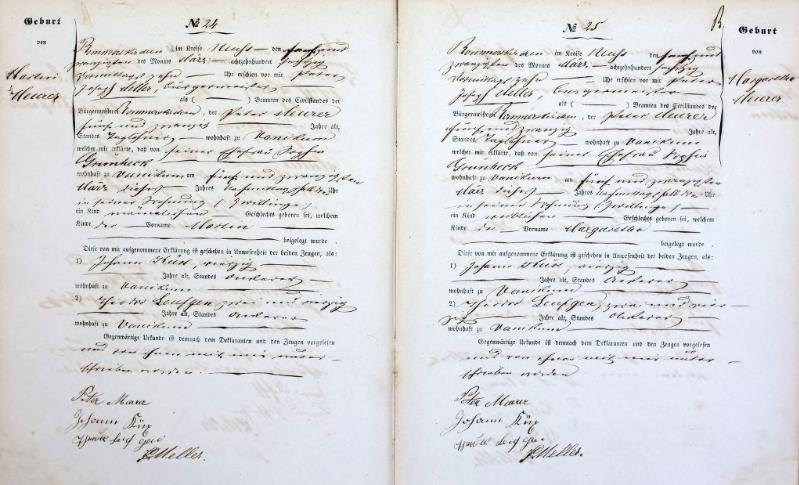 Geburt
von
Martin
Meurer
№ 24
Rommerskirchen im Kreise Neuß den fünf und
zwanzigsten des Monats März achtzehnhundert sechzig
Vormittags zehn Uhr erschien vor mir Peter
Joseph Meller, Burgermeister
als ( ) Beamten des Civilstandes der
Bürgermeisterei Rommerskirchen, der Peter Meurer
fünf und zwanzig Jahre alt,
Standes Taglöhner wohnhaft zu Vanikum
welcher mir erklärte, daß von seiner Ehefrau Sophia
Grünheck
wohnhaft zu Vanikum am fünf und zwanzigsten
März dieses Jahres Uhr
in seiner Wohnung (Zwillinge)
ein Kind männlichen Geschlechts geboren sei, welchem
Kinde der Vorname Martin
beigelegt wurde.
Diese von mir aufgenommene Erklärung ist geschehen in Anwesenheit der beiden Zeugen, als:
1) Johann Küx, vierzig
Jahre alt, Standes Ackerer
wohnhaft zu Vanikum
2) Theodor zwei und vierzig
Jahre alt, Standes Ackerer
wohnhaft zu Vanikum
Gegenwärtige Urkunde ist demnach dem Deklaranten und den Zeugen vorgelesen
und von ihnen mit mir unter-
schrieben worden.
Peter Meurer
Johann Küx
PJMeller.
Geburt
von
Margaretha
Meurer
№ 25
Rommerskirchen im Kreise Neuß den fünf und
zwanzigsten des Monats März achtzehnhundert sechzig
Vormittags zehn Uhr erschien vor mir Peter
Joseph Meller, Burgermeister
als ( ) Beamten des Civilstandes der
Bürgermeisterei Rommerskirchen, der Peter Meurer
fünf und zwanzig Jahre alt,
Standes Taglöhner wohnhaft zu Vanikum
welcher mir erklärte, daß von seiner Ehefrau Sophia
Grünheck
wohnhaft zu Vanikum am fünf und zwanzigsten
März dieses Jahres Uhr
in seiner Wohnung (Zwillinge)
ein Kind weiblichen Geschlechts geboren sei, welchem
Kinde der Vorname Margaretha
beigelegt wurde.
Diese von mir aufgenommene Erklärung ist geschehen in Anwesenheit der beiden Zeugen, als:
1) Johann Küx, vierzig
Jahre alt, Standes Ackerer
wohnhaft zu Vanikum
2) Theodor zwei und vier-
zig Jahre alt, Standes Ackerer
wohnhaft zu Vanikum
Gegenwärtige Urkunde ist demnach dem Deklaranten und den Zeugen vorgelesen
und von ihnen mit mir unter-
schrieben worden
Peter Meurer
Johann Küx
PJMeller.